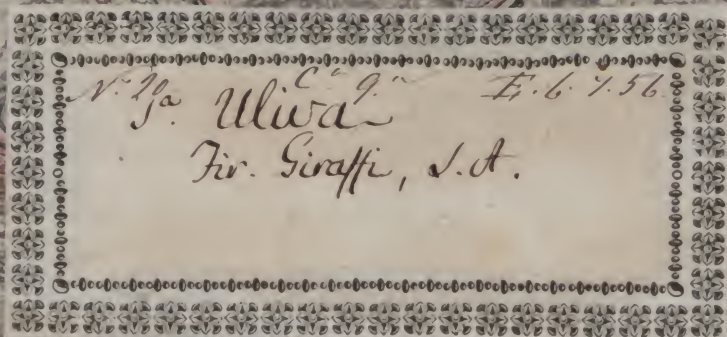 N.° 2 C.a 9.a E. 6. 7. 56.
S.a Uliva
Fir. Giraffi, S. A.